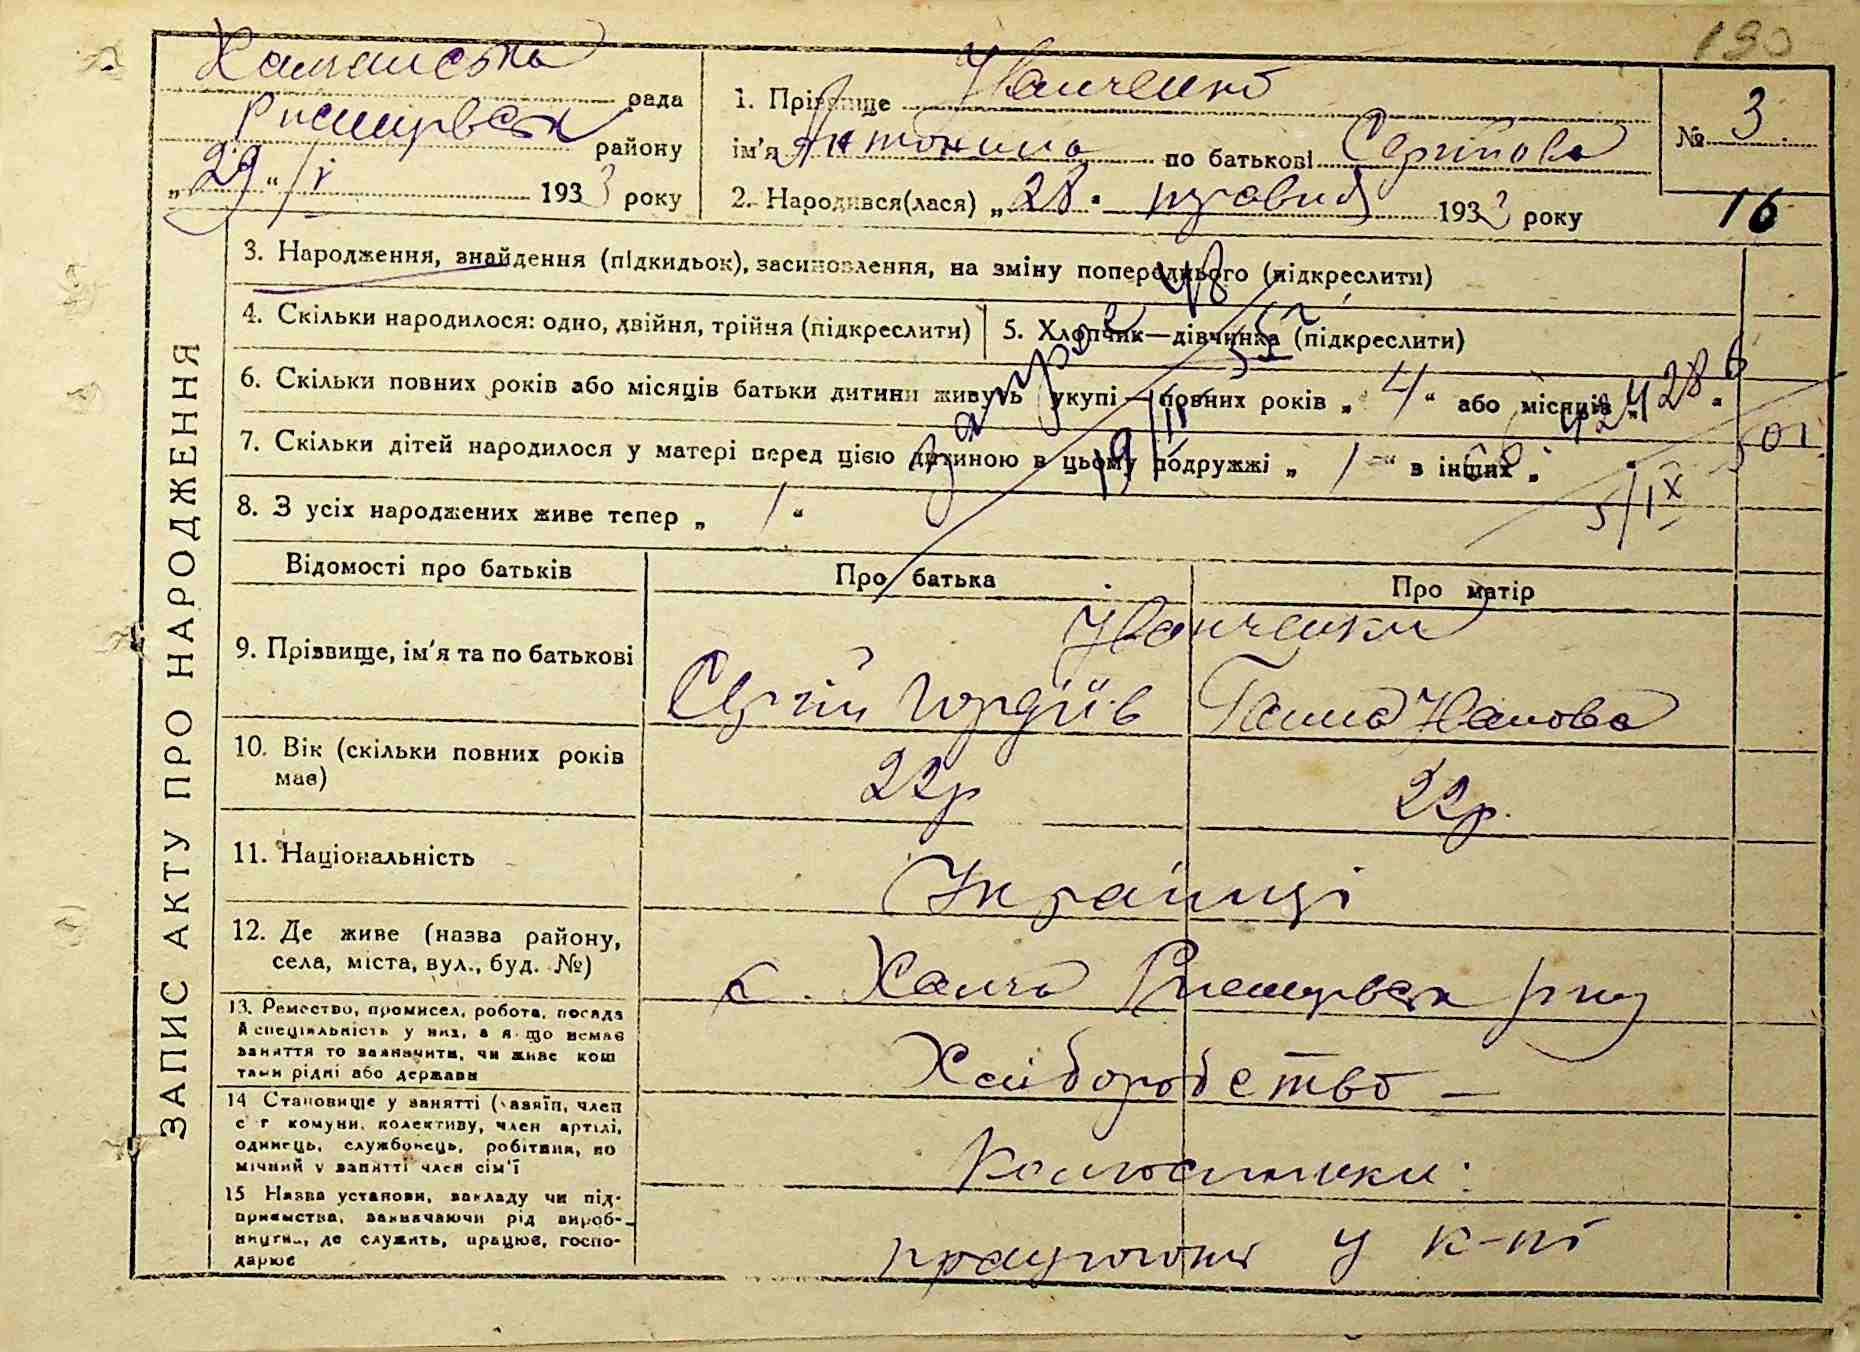 190
Халчанська рада
Ржищівськ району
„29“ /І 1933 року
1. Прізвище Іванченко
ім'я Антонина по батькові Сергіїова
2. Народився(лася) „28“ 1933 року
№ 3
16
ЗАПИС АКТУ ПРО НАРОДЖЕННЯ
3. Народження, знайдення (підкидьок), засиновлення, на зміну попереднього (підкреслити)
4. Скільки народилося: одно, двійня, трійня (підкреслити)
5. Хлопчик—дівчинка (підкреслити)
6. Скільки повних років або місяців батьки дитини живуть укупі — повних років „ 4 “ або місяців „ “
7. Скільки дітей народилося у матері перед цією дитиною в цьому подружжі „ 1 “ в інших „ “
8. З усіх народжених живе тепер „ 1 “
5/ІХ
Відомості про батьків
Про батька
Про матір
9. Прізвище, ім'я та по батькові
Іванченки
Сергій Гордіїв
Ганна Іванова
10. Вік (скільки повних років має)
22р
22р.
11. Національність
Українці
12. Де живе (назва району,
села, міста, вул., буд. №)
с. Халча Ржищівськ р-ну
13. Ремество, промисел, робота, посада
й спеціяльність у них, а якщо немає
заняття то зазначити, чи живе кош
тами рідні або держави
Хліборобство —
14 Становище у занятті (хазяїн, член
с г комуни, колективу, член артілі,
одинець, службовець, робітник, по
мічний у занятті член сім'ї
Колгоспники
15 Назва установи, закладу чи під-
приємства, зазначаючи рід вироб-
ництва, де служить, працює, госпо-
дарює
працюють у к-пі